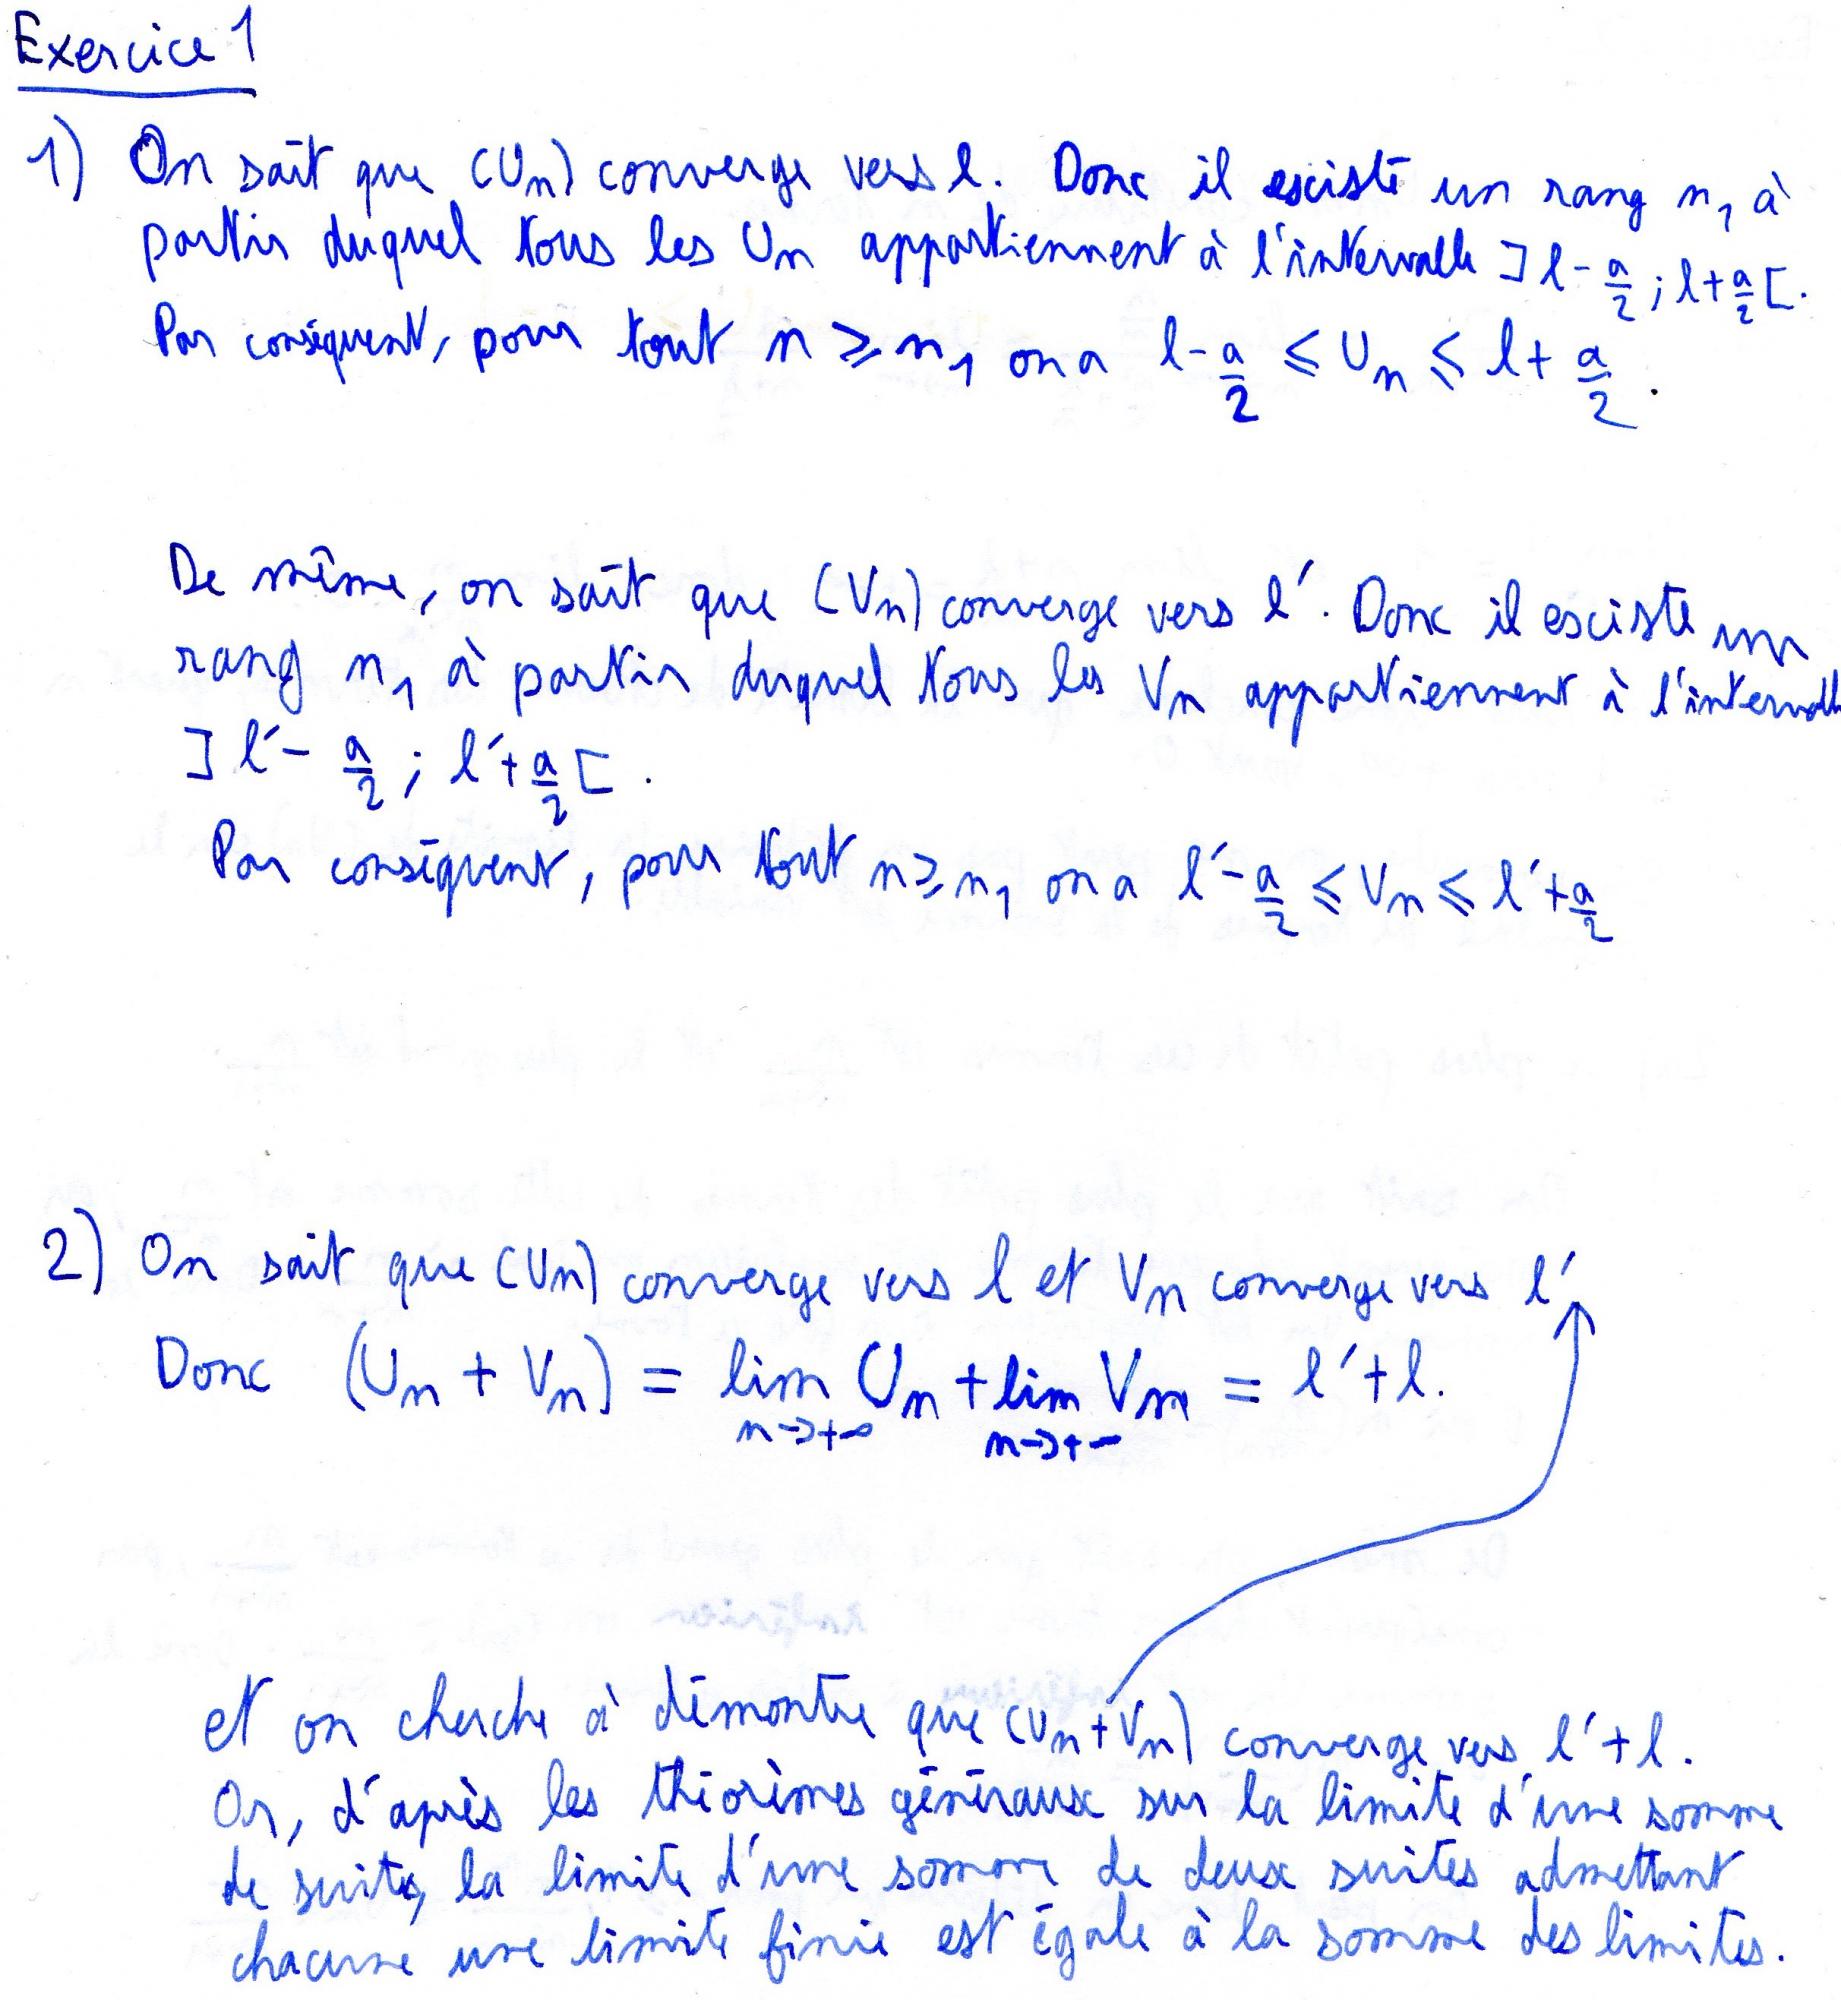 Exercice 1
1) On sait que (Un) converge vers l. Donc il existe un rang n₁ à
partir duquel tous les Un appartiennent à l'intervalle ]l-a/2 ; l+a/2[.
Par conséquent, pour tout n ⩾ n₁ on a l-a/2 ⩽ Un ⩽ l+a/2.
De même, on sait que (Vn) converge vers l'. Donc il existe un
rang n₁ à partir duquel tous les Vn appartiennent à l'intervalle
]l'-a/2 ; l'+a/2[.
Par conséquent, pour tout n ⩾ n₁ on a l'-a/2 ⩽ Vn ⩽ l'+a/2
2) On sait que (Un) converge vers l et Vn converge vers l'
Donc (Un + Vn) = lim Un + lim Vn = l'+l.
n→+∞ n→+∞
et on cherche à démontre que (Un+Vn) converge vers l'+l.
Or, d'après les théorèmes généraux sur la limite d'une somme
de suites, la limite d'une somme de deux suites admettant
chacune une limite finie est égale à la somme des limites.